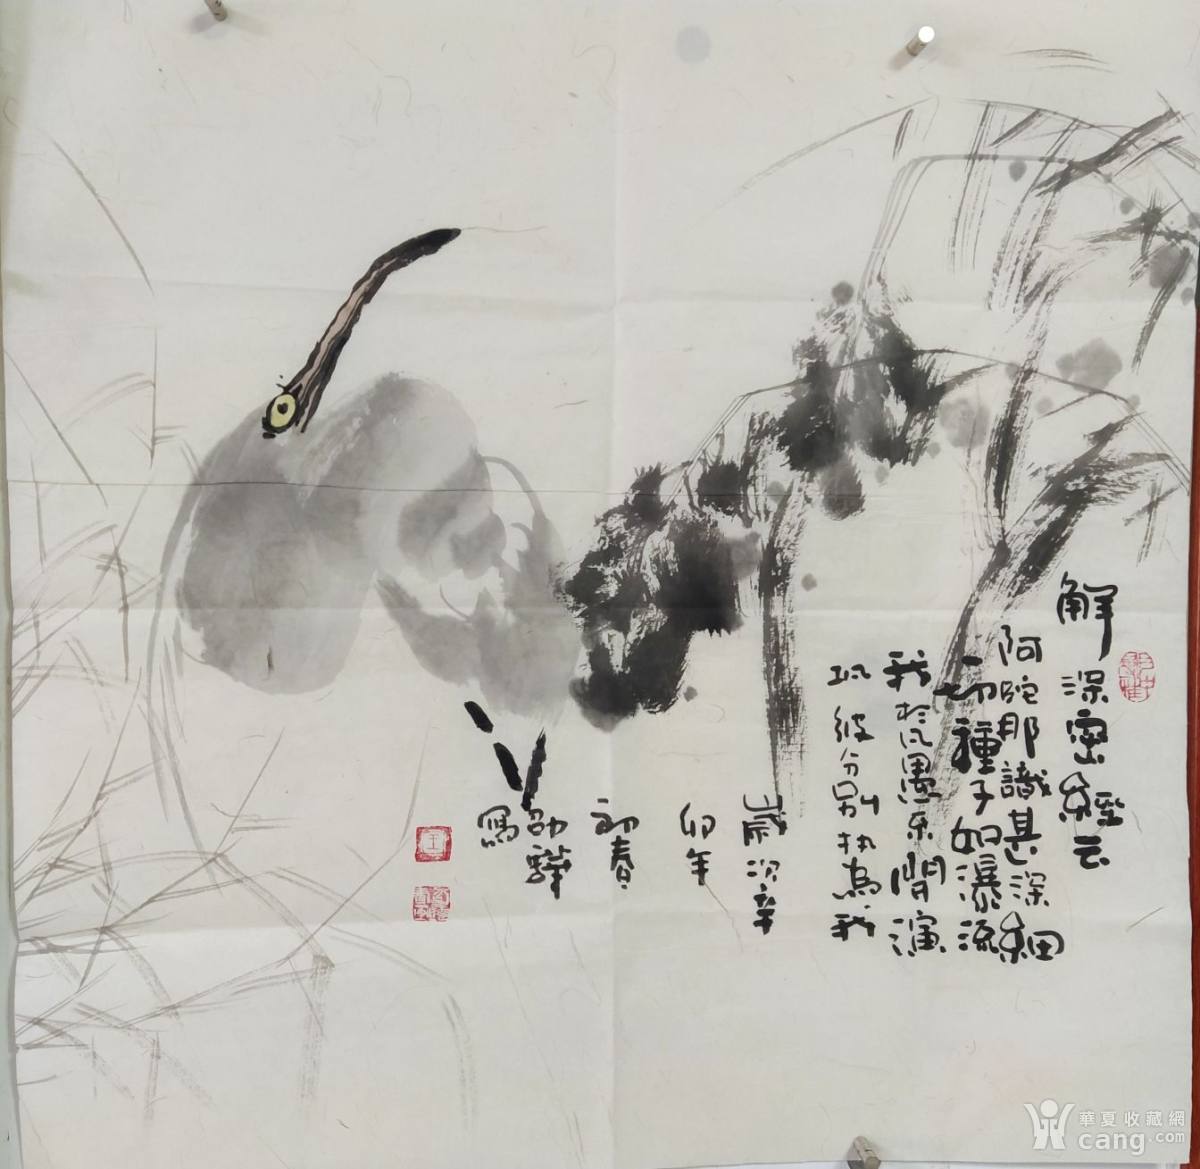 解深密經云
阿陀那識甚深細
一切種子如瀑流
我於凡愚不開演
恐彼分別执為我
歲次辛
卯年
初春
邵
寫
華夏收藏網
cang.com